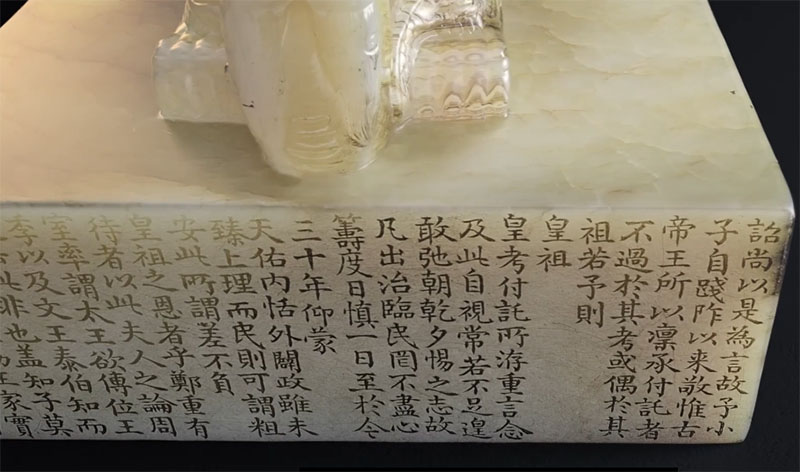 詔尚以是為言故予小
子自踐阼以來敬惟古
帝王所以凜承付託者
不過於其考或偶於其
祖若予則
皇祖
皇考付託所洊重言念
及此自視常若不足遑
敢弛朝乾夕惕之志故
凡出治臨民罔不盡心
籌度日慎一日至於今
三十年仰蒙
天佑內恬外闢政雖未
臻上理而民則可謂粗
安此所謂差不負
皇祖之恩者乎鄭重有
待者以此夫人之論周
室率謂太王欲傳位王
季以及文王泰伯知而
此非也盖知子莫
王家實